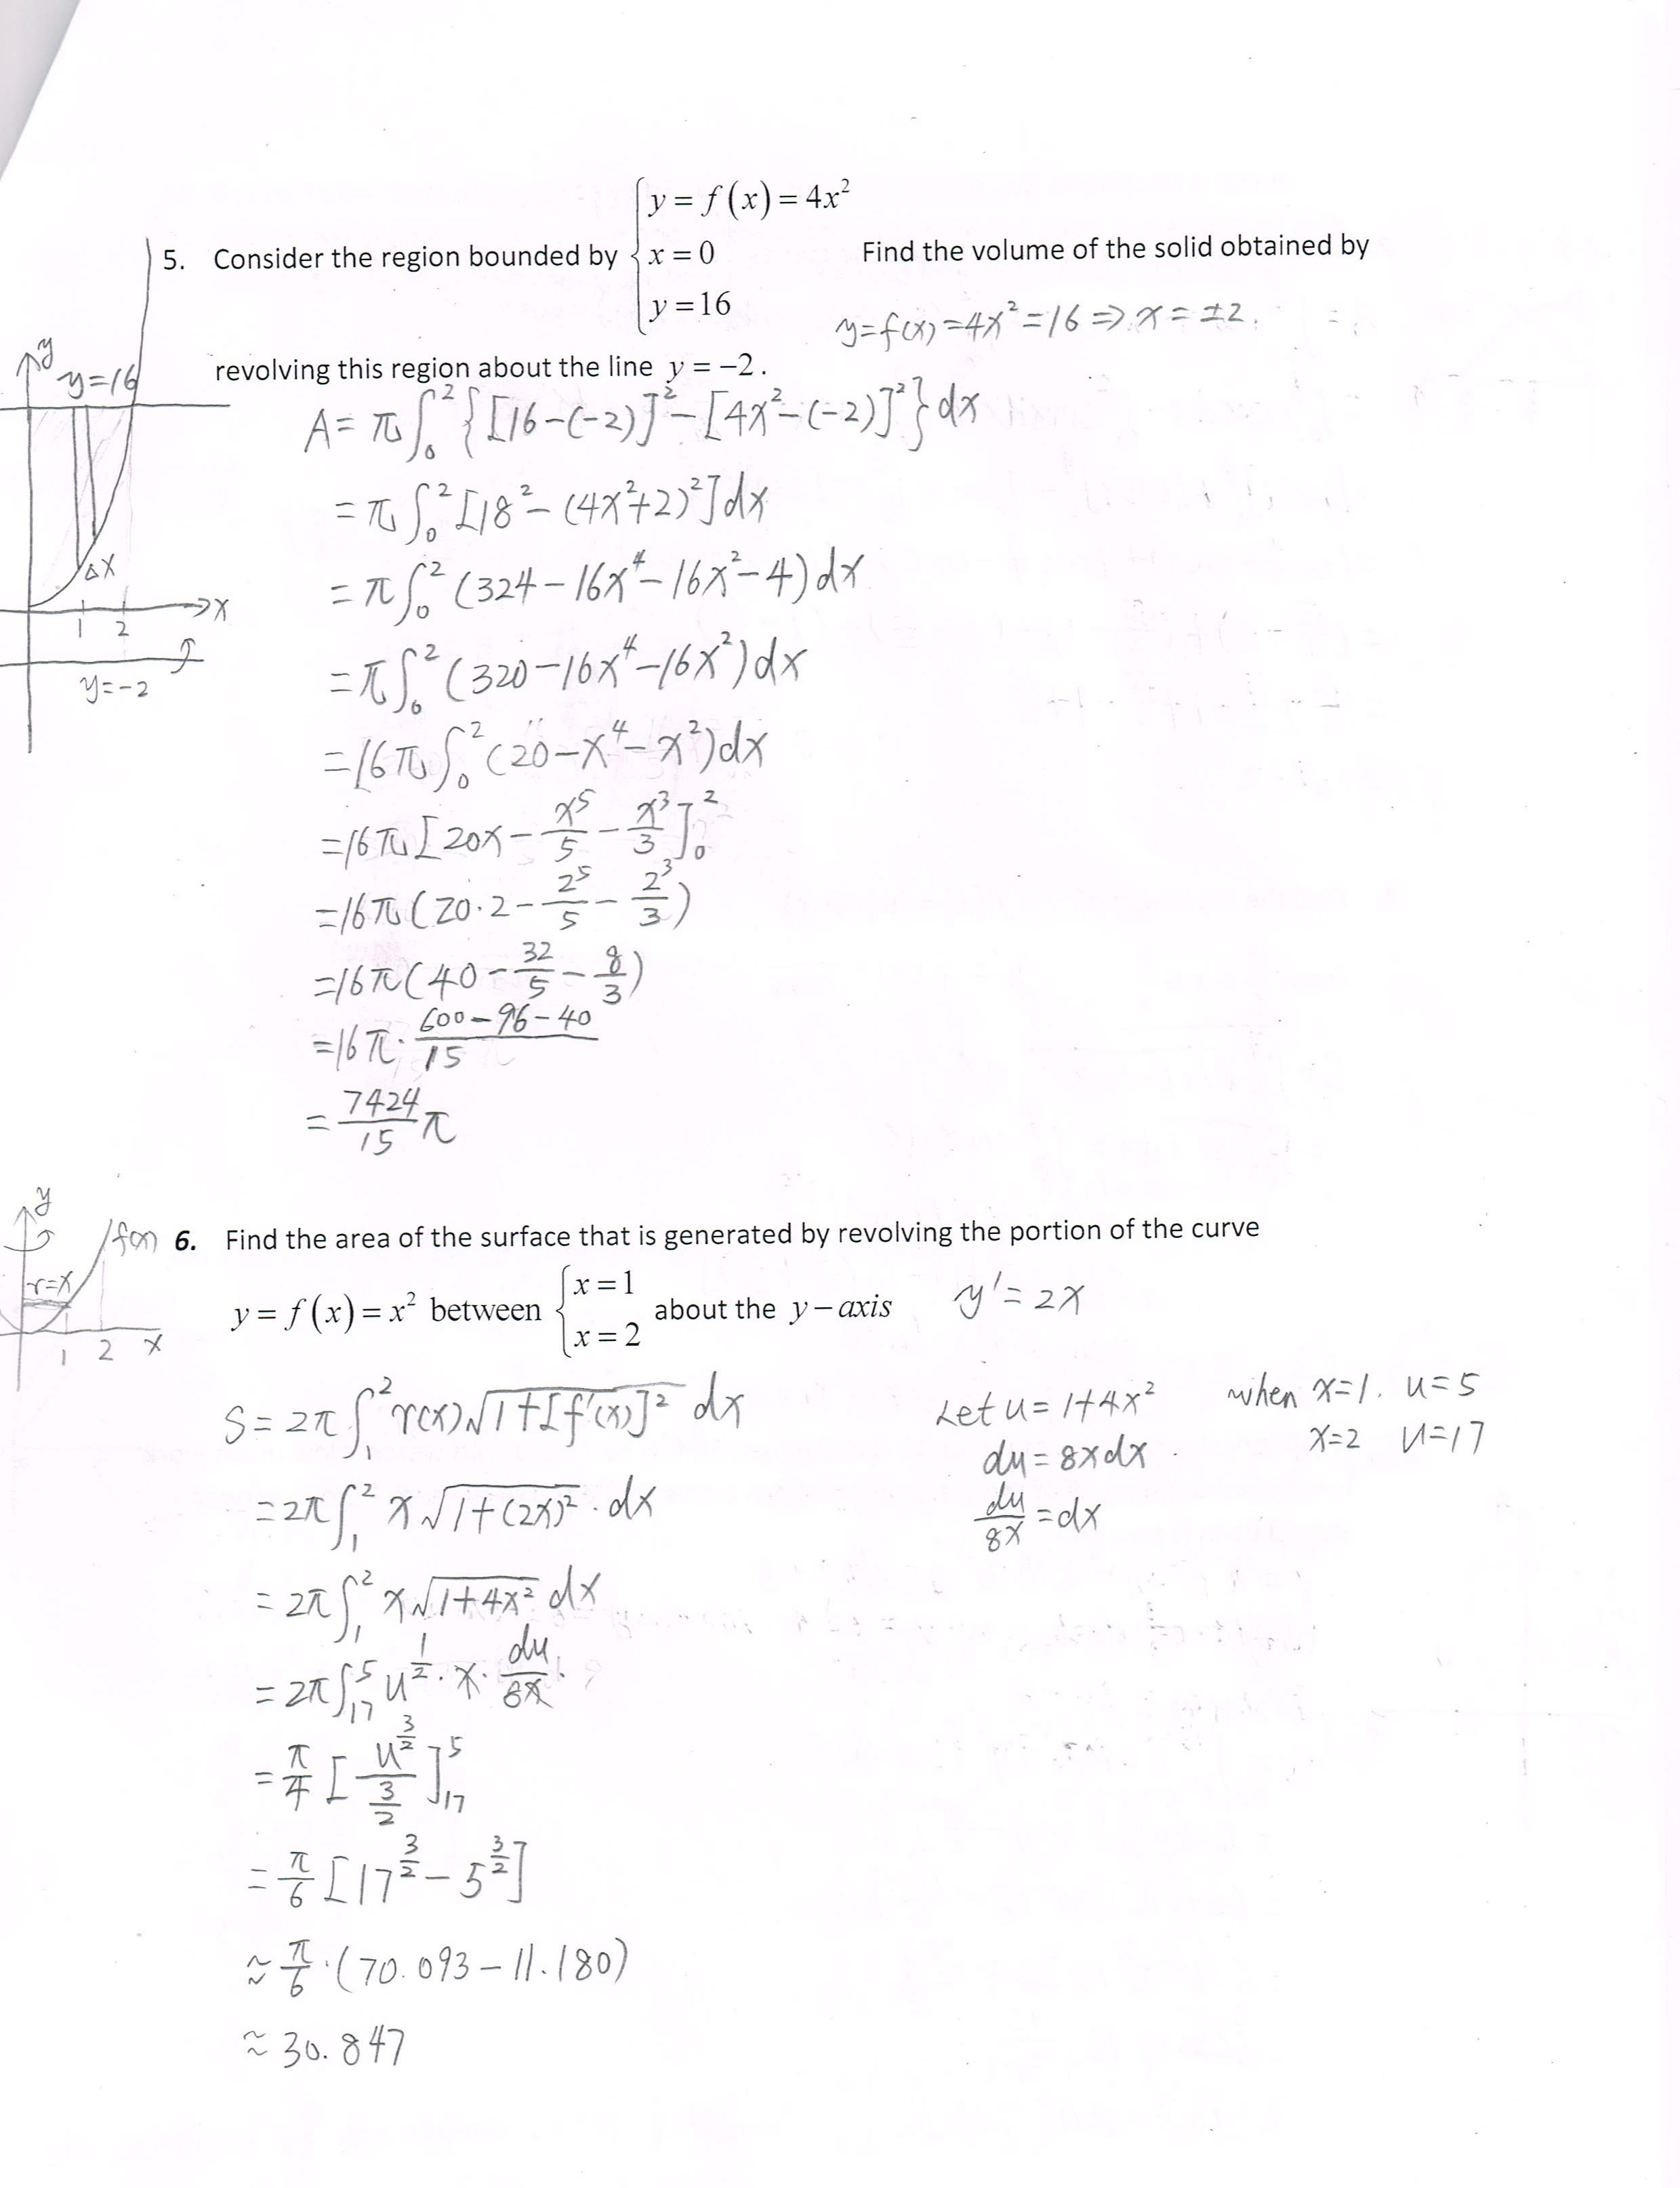 y = f(x) = 4x²
5. Consider the region bounded by { x = 0 Find the volume of the solid obtained by
y = 16
y=f(x)=4x²=16 ⇒ x = ±2.
revolving this region about the line y = −2.
y
y=16
Δx
x
1 2
y=-2
A = π∫₀² {[16-(-2)]² - [4x²-(-2)]²} dx
= π∫₀² [18² - (4x²+2)²] dx
= π∫₀² (324 - 16x⁴ - 16x² - 4) dx
= π∫₀² (320 - 16x⁴ - 16x²) dx
= 16π∫₀² (20 - x⁴ - x²) dx
= 16π [20x - x⁵/5 - x³/3]₀²
= 16π (20·2 - 2⁵/5 - 2³/3)
= 16π (40 - 32/5 - 8/3)
= 16π · (600-96-40)/15
= 7424/15 π
y
f(x)
r=x
1 2 x
6. Find the area of the surface that is generated by revolving the portion of the curve
y = f(x) = x² between { x = 1 x = 2 about the y − axis y' = 2x
S = 2π∫₁² r(x)√(1+[f'(x)]²) dx
= 2π∫₁² x√(1+(2x)²) · dx
= 2π∫₁² x√(1+4x²) dx
= 2π∫₁₇⁵ u^(1/2) · x · du/8x
= π/4 [u^(3/2) / (3/2)]₁₇⁵
= π/6 [17^(3/2) - 5^(3/2)]
≈ π/6 · (70.093 - 11.180)
≈ 30.847
Let u = 1+4x² when x=1. u=5
du = 8xdx x=2 u=17
du/8x = dx